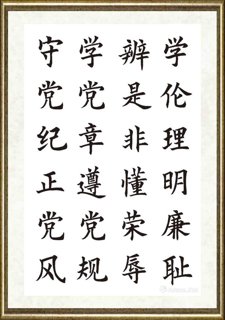 学伦理明廉耻
辨是非懂荣辱
学党章遵党规
守党纪正党风